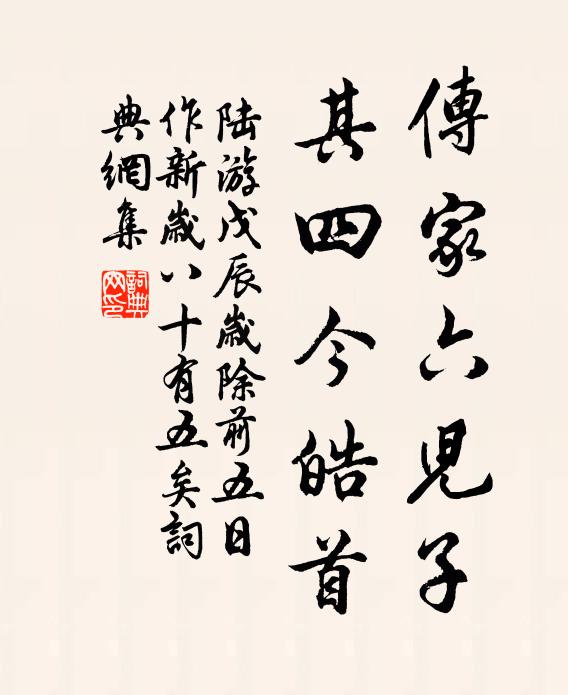 傳家六児子
其四今皓首
陆游戊辰歲除前五日
作新歲八十有五矣詞
典網集
詞典
网印